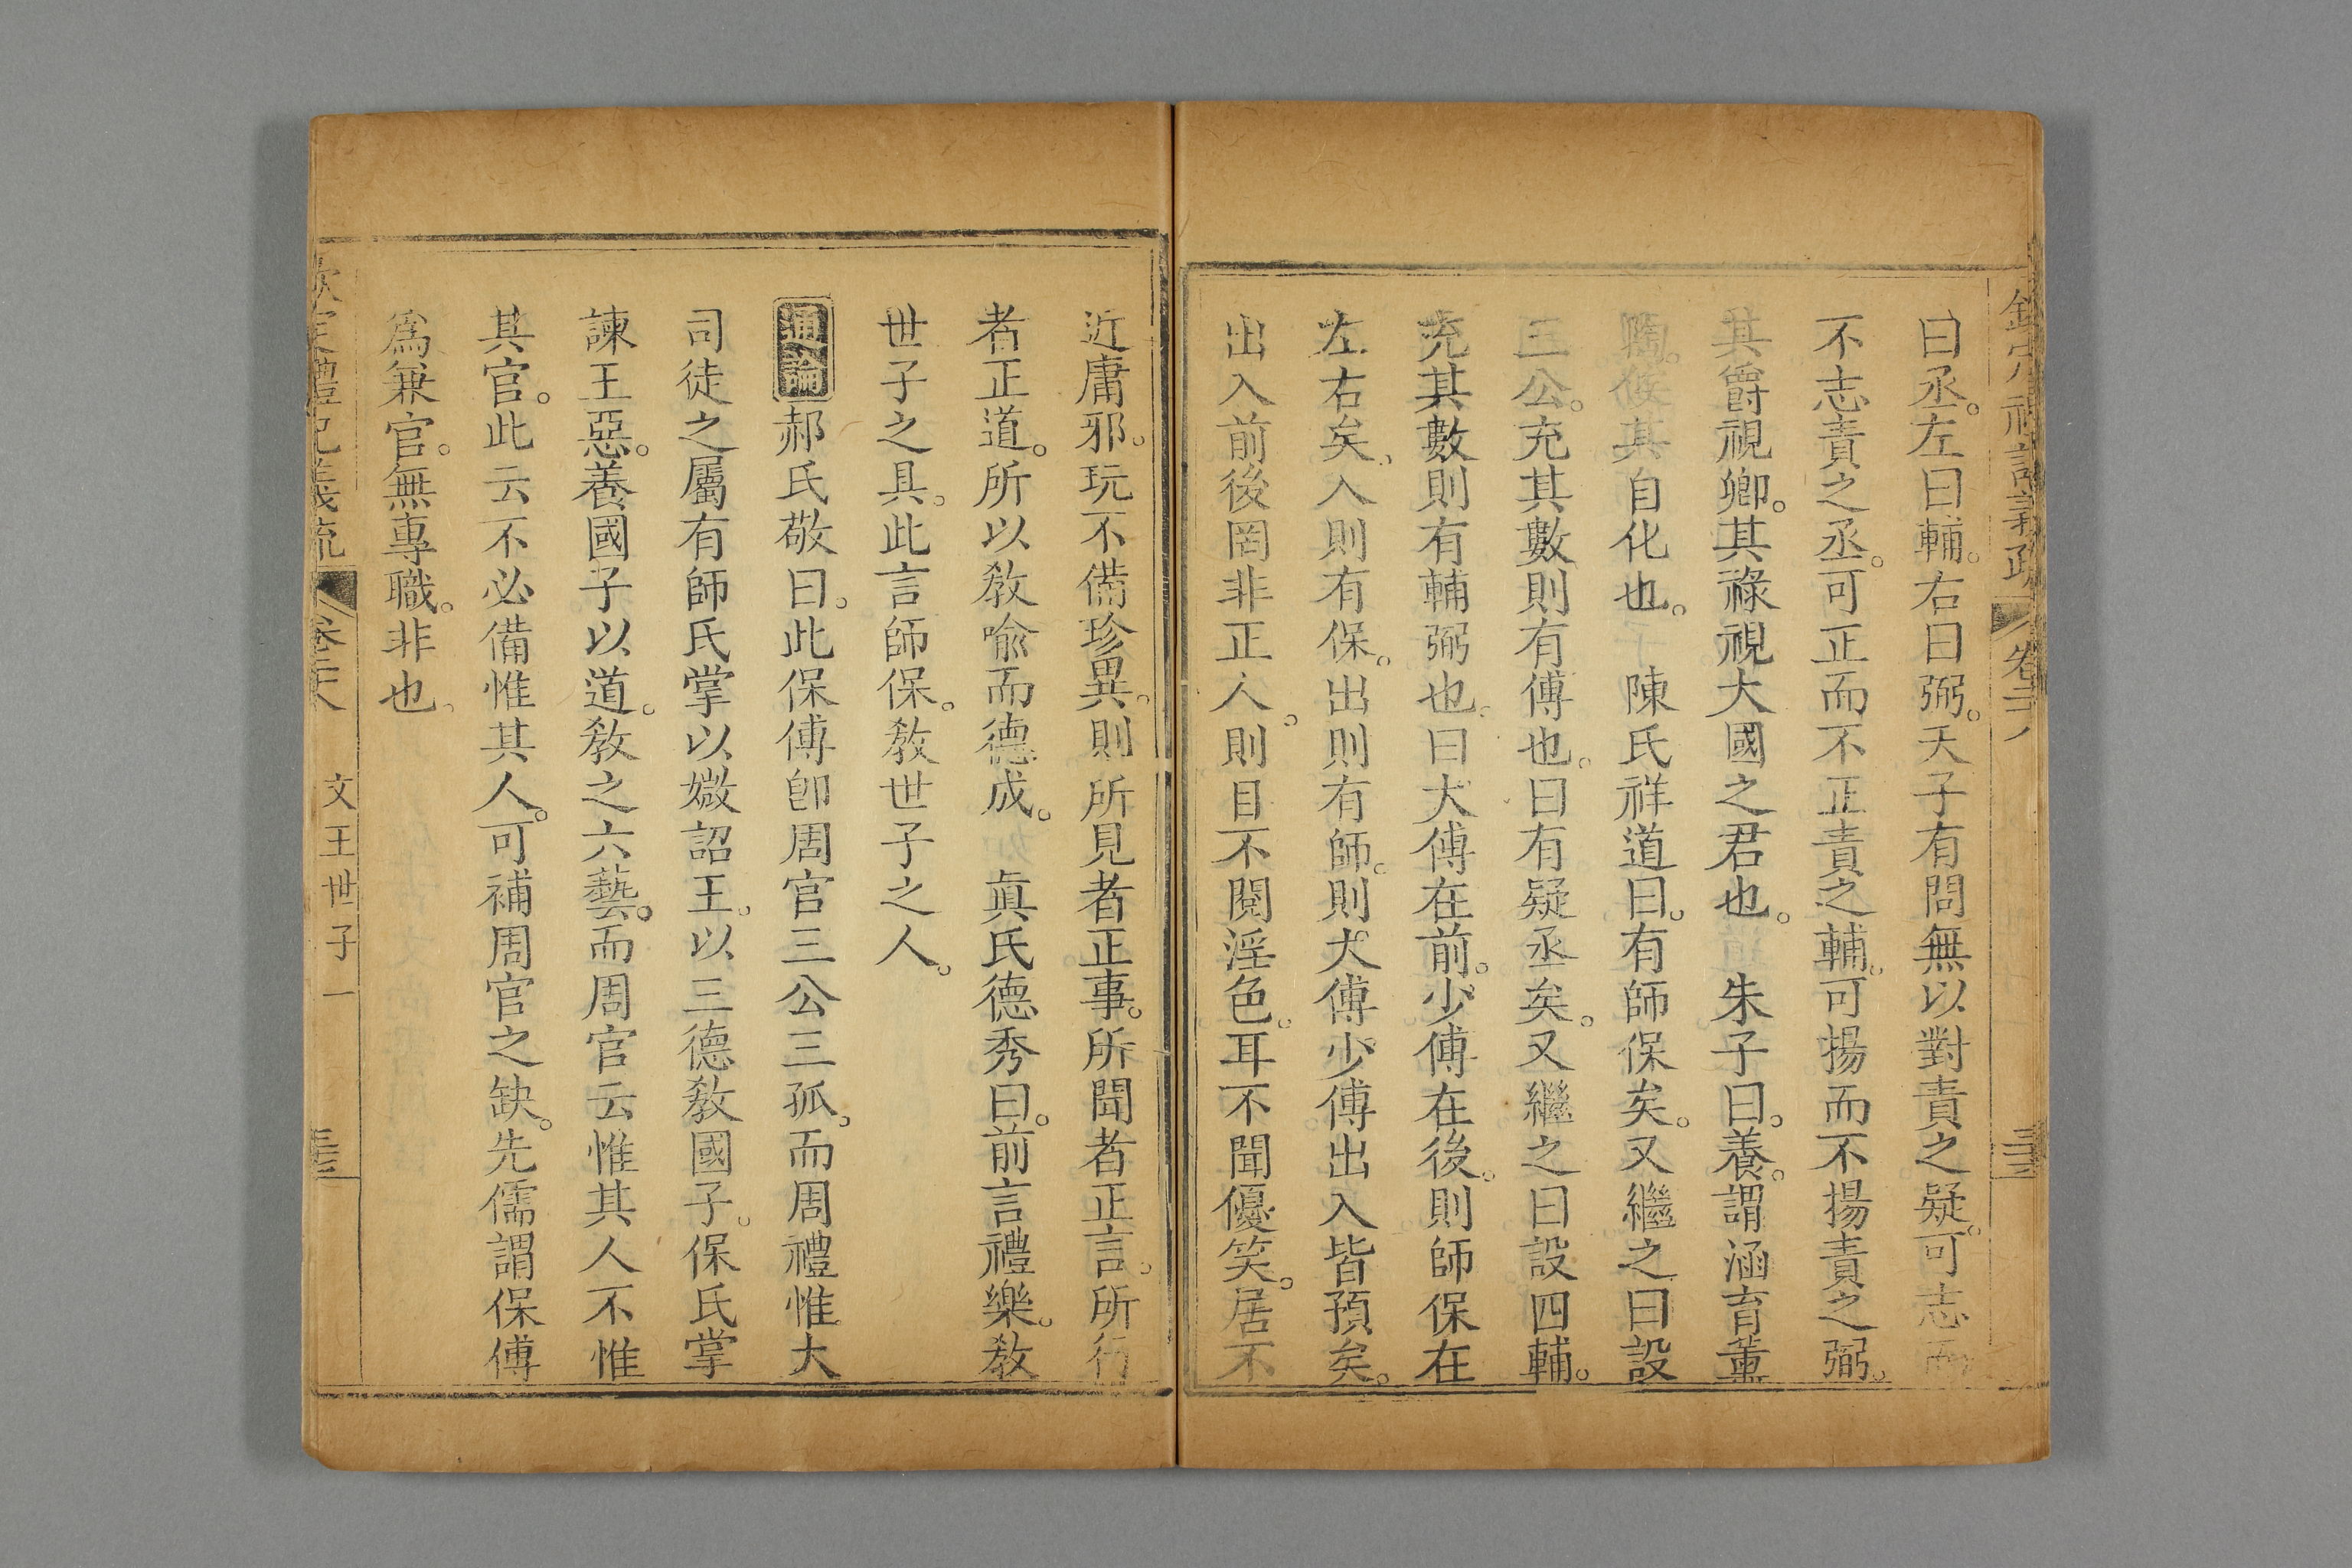 曰丞。左曰輔。右曰弼。天子有問無以對責之疑。可志而
不志責之丞。可正而不正責之輔。可揚而不揚責之弼。
其爵視卿。其祿視大國之君也。　朱子曰。養。謂涵育薰
陶。俟其自化也。　陳氏祥道曰。有師保矣。又繼之曰設
三公。充其數則有傅也。曰有疑丞矣。又繼之曰設四輔。
充其數則有輔弼也。曰大傅在前。少傅在後。則師保在
左右矣。入則有保。出則有師。則大傅少傅出入皆預矣。
出入前後罔非正人。則目不閱淫色。耳不聞優笑。居不
近庸邪。玩不備珍異。則所見者正事。所聞者正言。所行
者正道。所以敎喩而德成。　眞氏德秀曰。前言禮樂。敎
世子之具。此言師保。敎世子之人。
通論郝氏敬曰。此保傅卽周官三公三孤。而周禮惟大
司徒之屬有師氏掌以媺詔王。以三德敎國子。保氏掌
諫王惡。養國子以道。敎之六藝。而周官云惟其人不惟
其官。此云不必備惟其人。可補周官之缺。先儒謂保傅
爲兼官。無專職。非也。
欽定禮記義疏　卷二十八　文王世子一　三十三